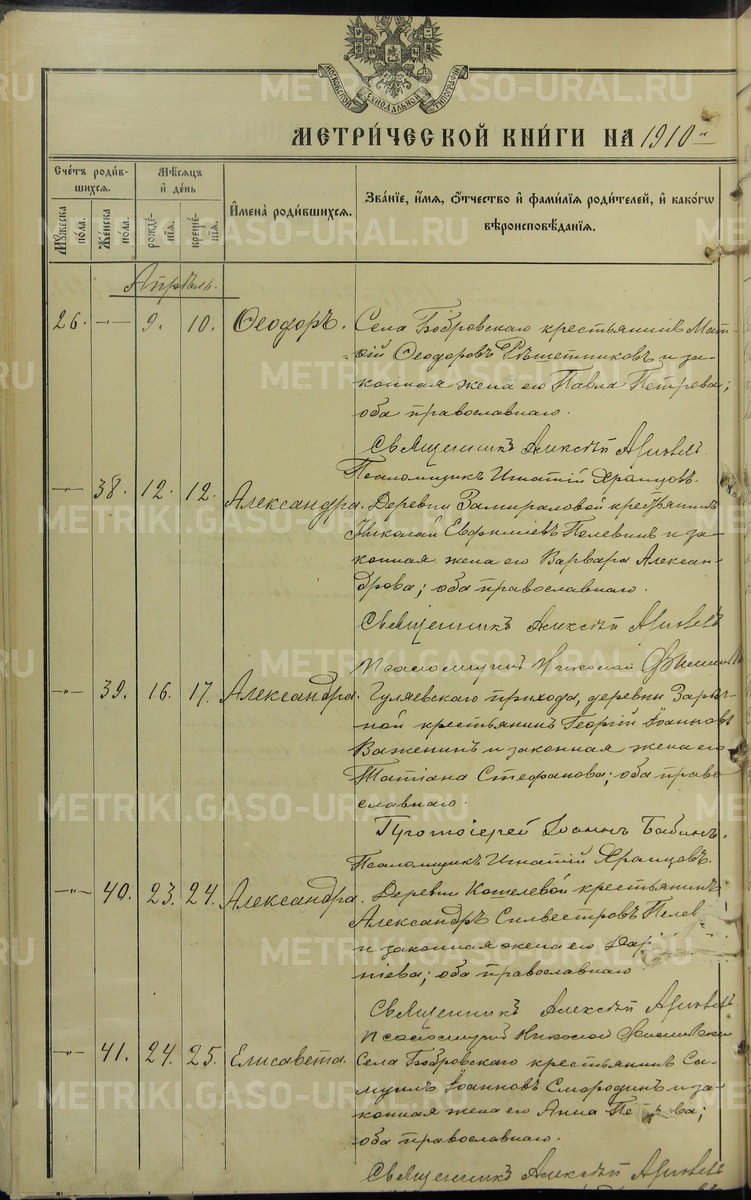 МОСКОВСКОЙ СѴНОДАЛЬНОЙ ТИПОГРАФІИ
МЕТРИ́ЧЕСКОЙ КНИ́ГИ НА 1910
Сче́тъ роди́в-
шихся.
Му́жеска по́ла.
Же́нска по́ла.
Мѣ́сяцъ
и҆ де́нь
рожде́-
нїя.
креще́-
нїя.
И҆мена̀ роди́вшихся.
Зва́нїе, и҆́мя, ѻ҆́тчество и҆ фами́лїя роди́телей, и҆ како́гѡ
вѣроисповѣ́данїя.
Апрѣль.
26. —"— 9. 10. Ѳеодоръ. Села Бобровскаго крестьянинъ Мат-
ѳій Ѳеодоровъ Рѣшетниковъ и за-
конная жена его Павла Петрова;
оба православнаго.
Священникъ Алексѣй
Псаломщикъ Игнатій Храмцовъ.
—"— 38. 12. 12. Александра. Деревни Замираловой крестьянинъ
Николай Евфиміевъ Пелевинъ и за-
конная жена его Варвара Алексан-
дрова; оба православнаго.
Священникъ Алексѣй
Псаломщикъ Николай
—"— 39. 16. 17. Александра. Гуляевскаго прихода, деревни Зарѣч-
ной крестьянинъ Георгій Іоанновъ
Важенинъ и законная жена его
Татіана Стефанова; оба право-
славнаго.
Протоіерей Іоаннъ Бабинъ.
Псаломщикъ Игнатій Храмцовъ.
—"— 40. 23. 24. Александра. Деревни Кошелевой крестьянинъ
Александръ Силвестровъ Пелев
и законная жена его Дар
ніева; оба православнаго
Священникъ Алексѣй
Псаломщикъ Николай
—"— 41. 24. 25. Елисавета. Села Бобровскаго крестьянинъ Са-
муилъ Іоанновъ Смородинъ и за-
конная жена его Анна Пе ва;
оба православнаго.
Священникъ Алексѣй
METRIKI.GASO-URAL.RU